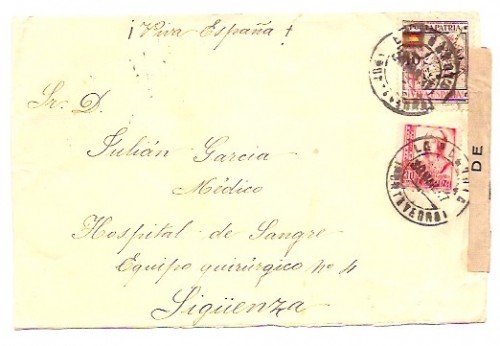 ¡Viva España!
POR LA PATRIA
Sr. D.
Julián Garcia
Médico
Hospital de Sangre
Equipo quirúrgico nº 4
Sigüenza
30
DE